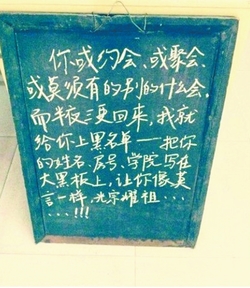 你或约会、或聚会、
或莫须有的别的什么会,
而半夜三更回来,我就
给你上黑名单——把你
的姓名、房号、学院写在
大黑板上,让你像莫
言一样,光宗耀祖...
...!!!